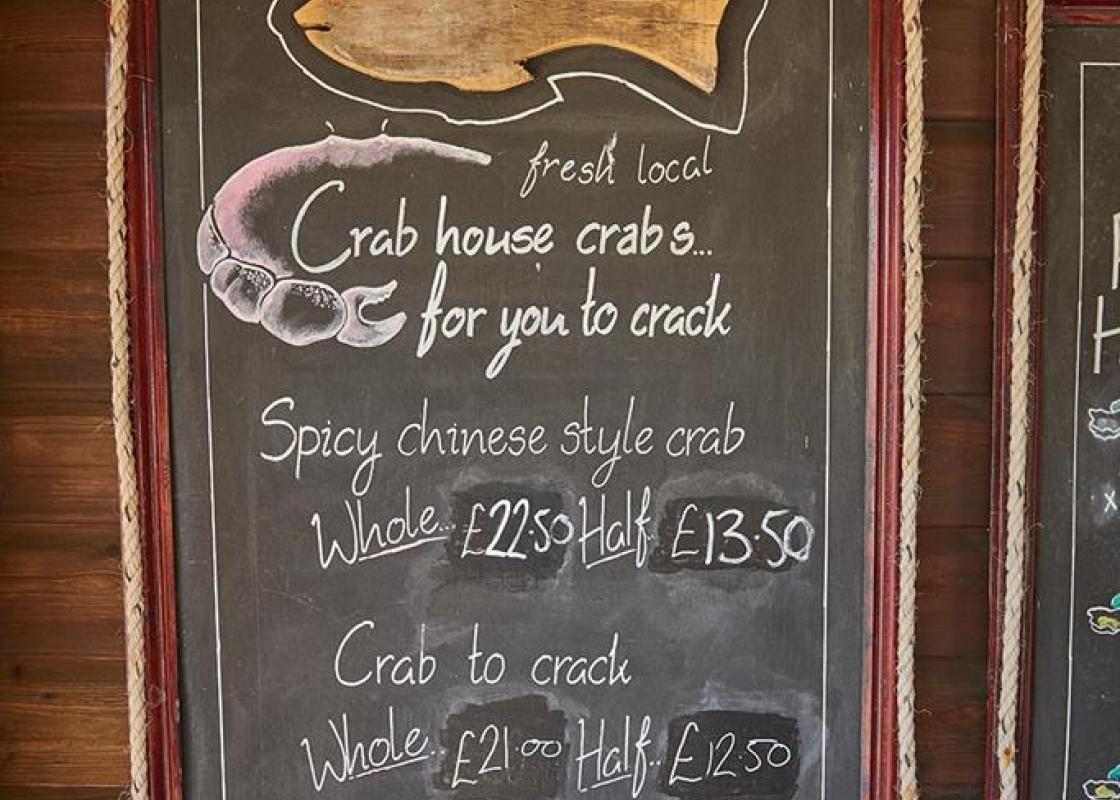 fresh local
Crab house crabs...
for you to crack
Spicy chinese style crab
Whole... £22.50 Half. £13.50
Crab to crack
Whole.. £21.00 Half.. £12.50